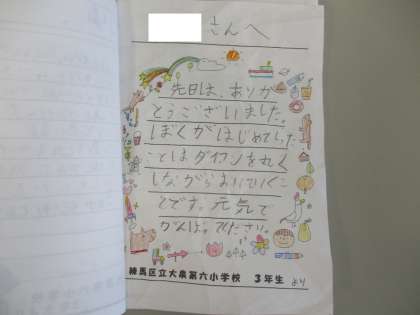 さんへ
先日は、ありが
とうございました。
ぼくがはじめてしった
ことはダイコンをれく
しながらおいていくこ
とです。元気で
がんばってください。
練馬区立大泉第六小学校 3年生 より